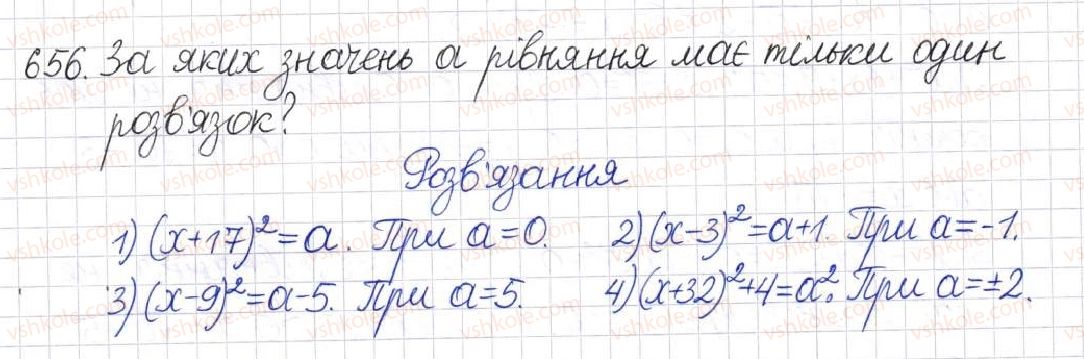 656. За яких значень а рівняння має тільки один
розв'язок?
Розв'язання
1) (x+17)²=a. При a=0. 2) (x-3)²=a+1. При a=-1.
3) (x-9)²=a-5. При a=5. 4) (x+32)²+4=a². При a=±2.